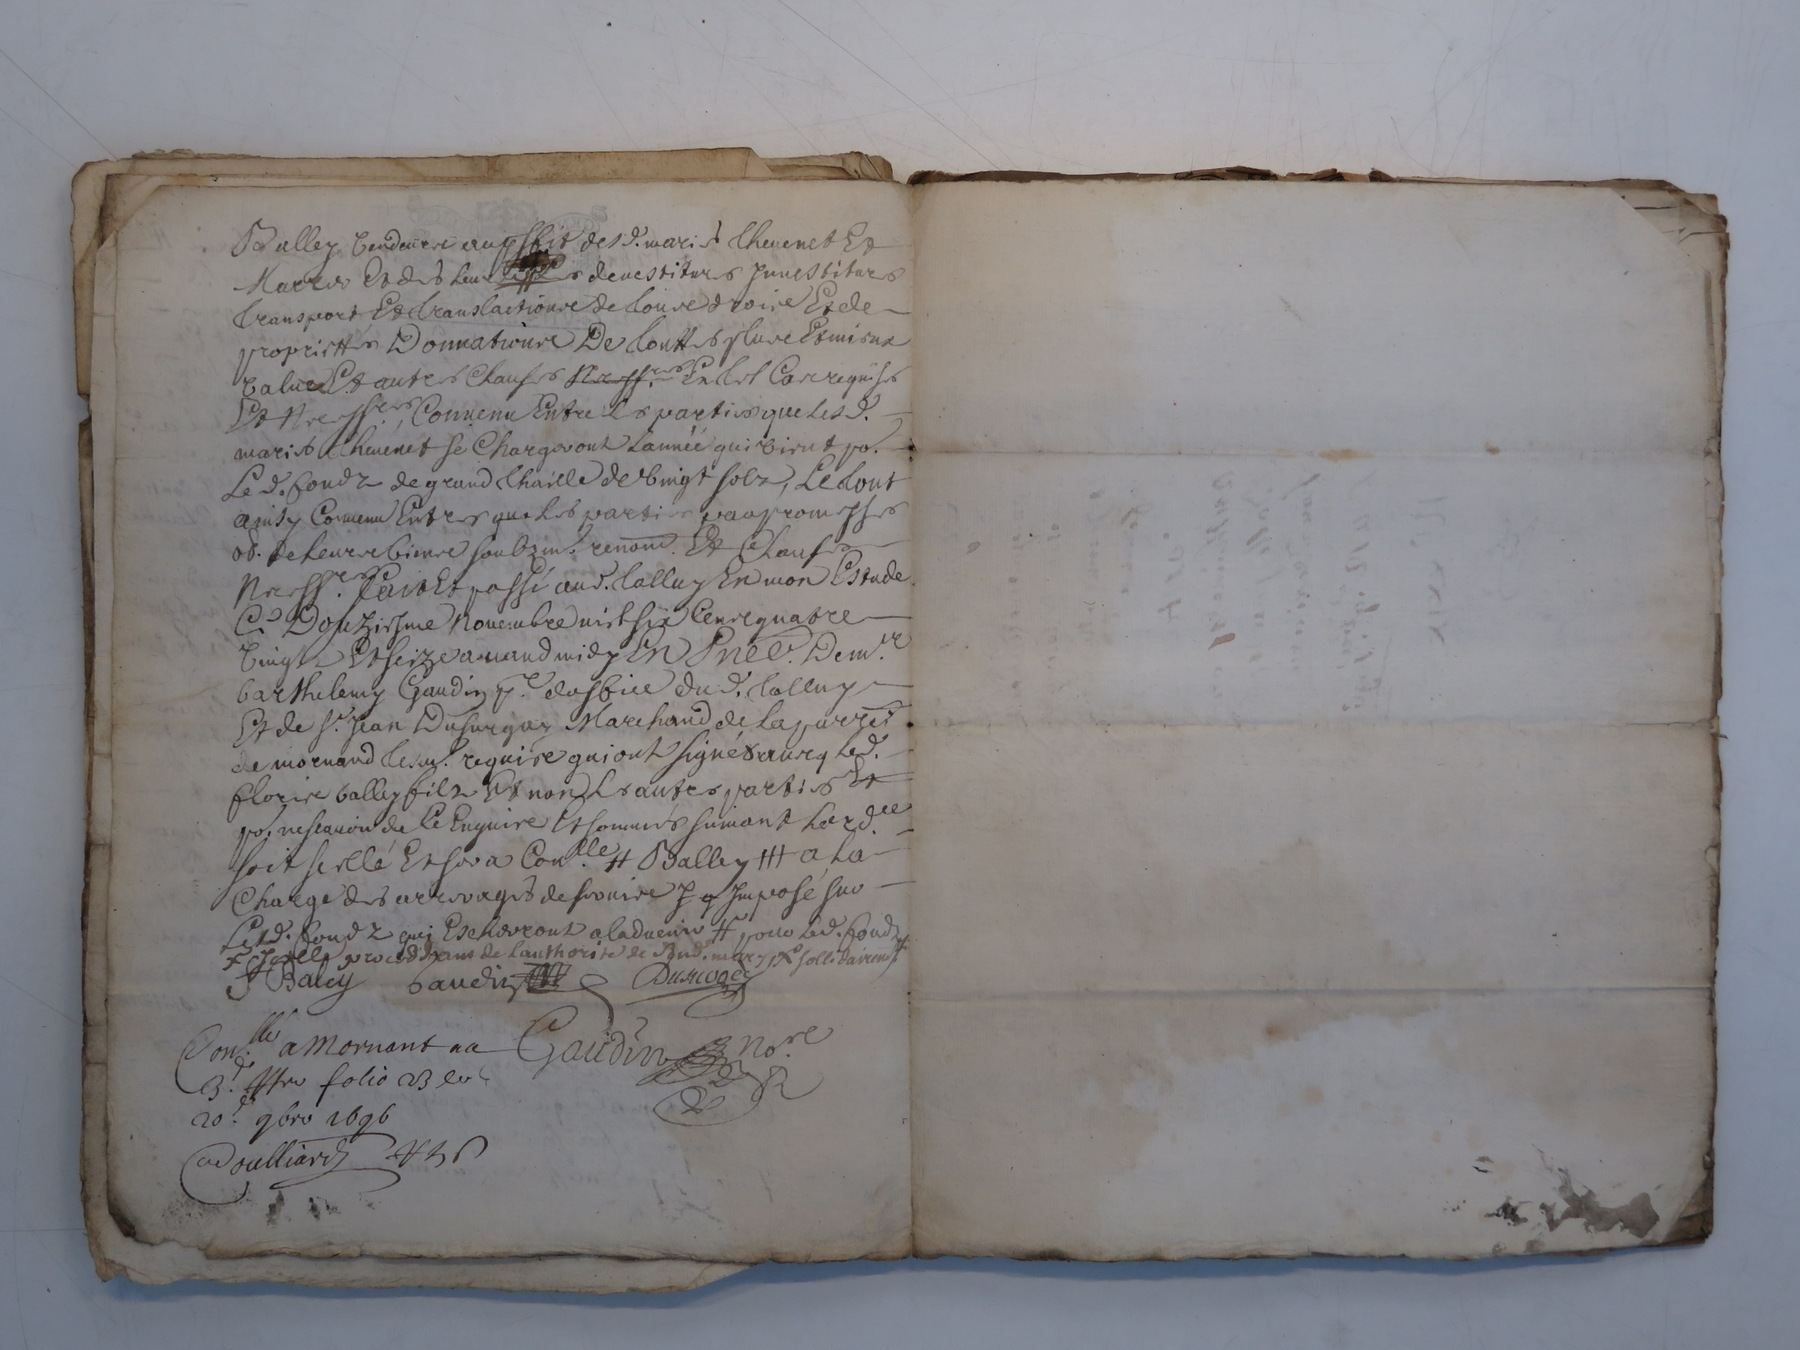 Balley vendeurs au proffit desd. mariés Thevenet Et
Marrer Et des leurs devestiture Jnvestiture
transport Et translactions de tous droits Et de
propriettés Donnations De touttes plus Et mieux
value Et autres Clauses En tel Cas requises
Et Necess.res Convenu Entre les parties que lesd.
mariés Thevenet se Chargeront l'année qui vient po.r
Led. fondz de grand thaille de vingt solz, Le tout
ainsy Convenu Entres que les parties par promesses
ob. de leurs biens soubzm. renonc. Et Clauses
Necess.res fait Et passé aud. talluy En mon Estude
Ce Douziesme Novembre mil six Cens quatre
vingtz Et seize avand midy En Pnce. De m.re
barthelemy Gaudin p.r d'office dud. talluy
Et de s.r Jean Dusurgey Marchand de la parr.
de mornand tesm. requis qui ont signé avecq led.
florise balley filz Et non Les autres parties
po. ne scavoir de Ce Enquis Et sommés suivant L'ord.ce
soit scellé Et sera Con.llé # Balley ### a La
Charge des arrerages de servis Imposé sur
Led. fondz qui Escherront a l'advenir # pour led. fondz
proceddans de l'authorité de sond. mary sollidairem.t
F Baley Gaudin Dusurgey
Con.llé a Mornant au Gaudin No.re
3.e Re folio 23 le
20.e 9bre 1696